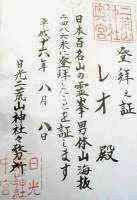 登拝之証
レオ殿
日本百名山の霊峯男体山海抜
二四八六米に登拝したことを証します
平成十六年八月八日
日光二荒山神社々務所